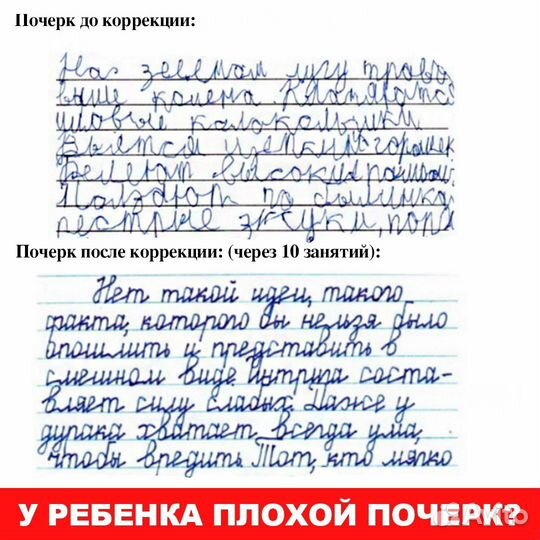 Почерк до коррекции:
На зеленом лугу трава
выше колена. Клонятся
лиловые колокольчики
Вьётся цепкий горошек
Белеют высокие ромашки
Ползают по былинкам
пестрые жуки, пор
Почерк после коррекции: (через 10 занятий):
Нет такой идеи, такого
факта, которого бы нельзя было
опошлить и представить в
смешном виде. Интрига соста-
вляет силу слабых. Даже у
дурака хватает всегда ума,
чтобы вредить. Тот, кто мягко
У РЕБЕНКА ПЛОХОЙ ПОЧЕРК?
Avito